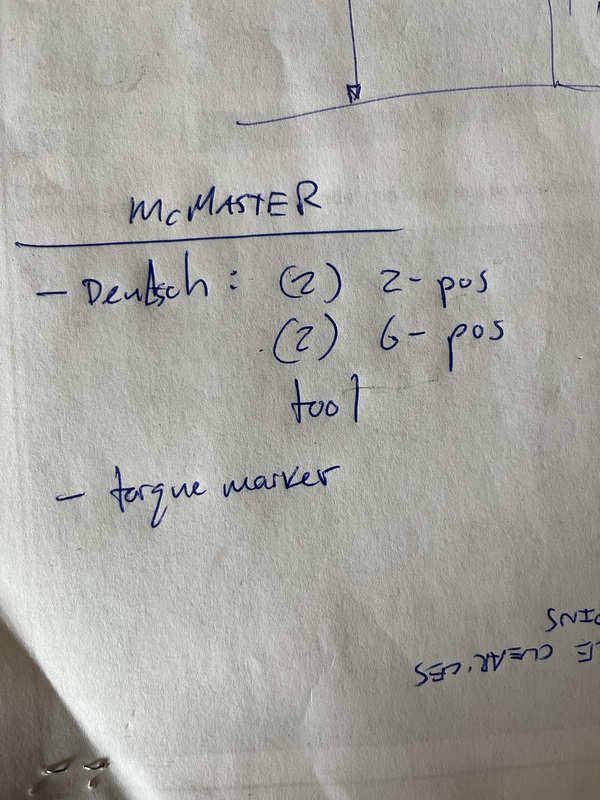 McMASTER
- Deutsch: (2) 2-pos
(2) 6-pos
tool
- torque marker
CLEAR'CES